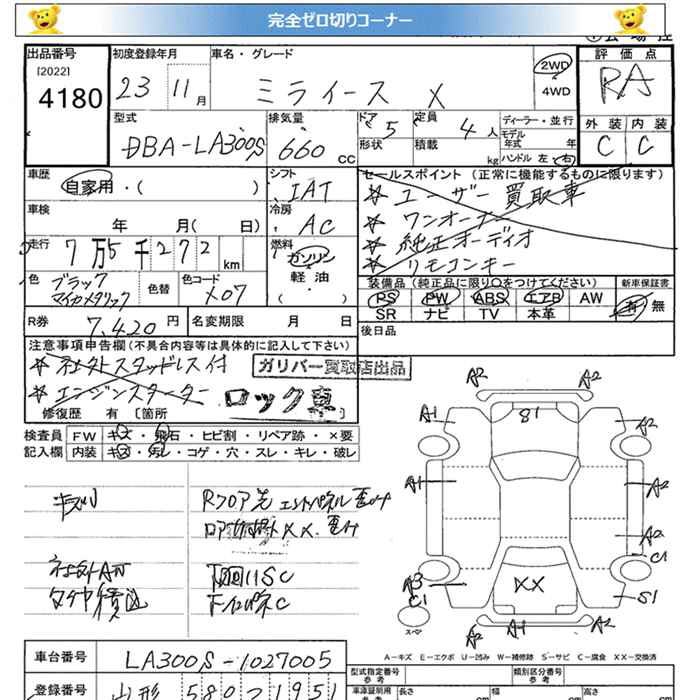 完全ゼロ切りコーナー
出品番号
[2022]
4180
初度登録年月
23 11月
車名・グレード
ミライース X
2WD
4WD
評価点
RA
外装 内装
C C
型式
DBA-LA300S
排気量
660 CC
ドア
5
形状
定員
4 人
積載
kg
ディーラー・並行
モデル年式 年
ハンドル 左 右
車歴
自家用・( )
シフト
IAT
車検
年 月( 日)
冷房
AC
走行
7万5千272 km
燃料
ガソリン
軽油
・( )
色
ブラック
マイカメタリック
色替
色コード
X07
セールスポイント (正常に機能するものに限ります)
* ユーザー買取車
* ワンオーナー
* 純正オーディオ
* リモコンキー
装備品 (純正品に限り〇をつけてください)
PS PW ABS エアB AW
SR ナビ TV 本革
新車保証書
有 無
R券
7,420 円
名変期限 月 日
後日品
注意事項申告欄 (不具合内容等は具体的に記入して下さい)
* 社外スタッドレス付
ガリバー買取店出品
* エンジンスターター
ロック車
修復歴 有 [箇所 ]
検査員
記入欄
FW キズ・飛石・ヒビ割・リペア跡・×要
内装 キズ・汚レ・コゲ・穴・スレ・キレ・破レ
キズ
Rフロア先 エンドパネル歪み
XX. 歪み
社外AW
下回りSC
タイヤ積込
C
A2 A2
A1 S1 A2
A1 A2
A2
C1
A3
C1
XX
S1
スペア
A2 A1 A2
A-キズ E-エクボ U-凹み W-補修跡 S-サビ C-腐食 XX-交換済
車台番号
LA300S-1027005
登録番号
山形 580 1951
型式指定番号
参考
類別区分番号
参考
長さ cm
幅
高さ